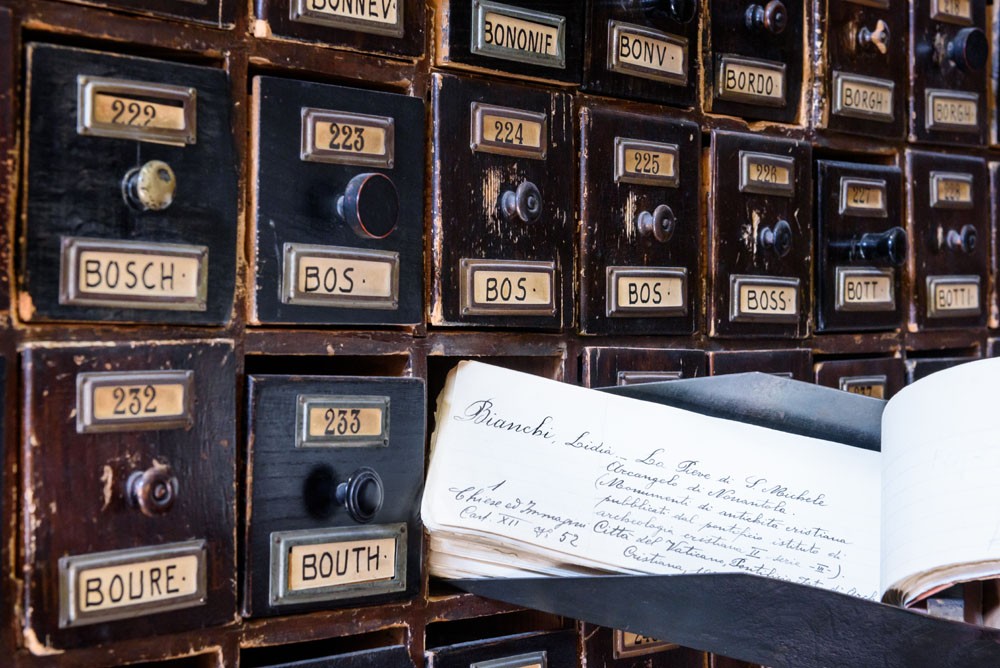 BONNEV.
BONONIE
BONV.
BORDO.
BORGH.
BORGH.
222
223
224
225
226
227
228
BOSCH.
BOS.
BOS.
BOS.
BOSS.
BOTT.
BOTTI.
232
233
BOURE.
BOUTH.
Bianchi, Lidia. La Pieve di S. Michele
Arcangelo di Nonantola.
(Monumenti di antichità cristiana
pubblicati dal pontificio istituto di
archeologia cristiana II serie
Chiese ed Immagini
Cart. XII
52
Città del Vaticano, Pontificio
Cristiana,